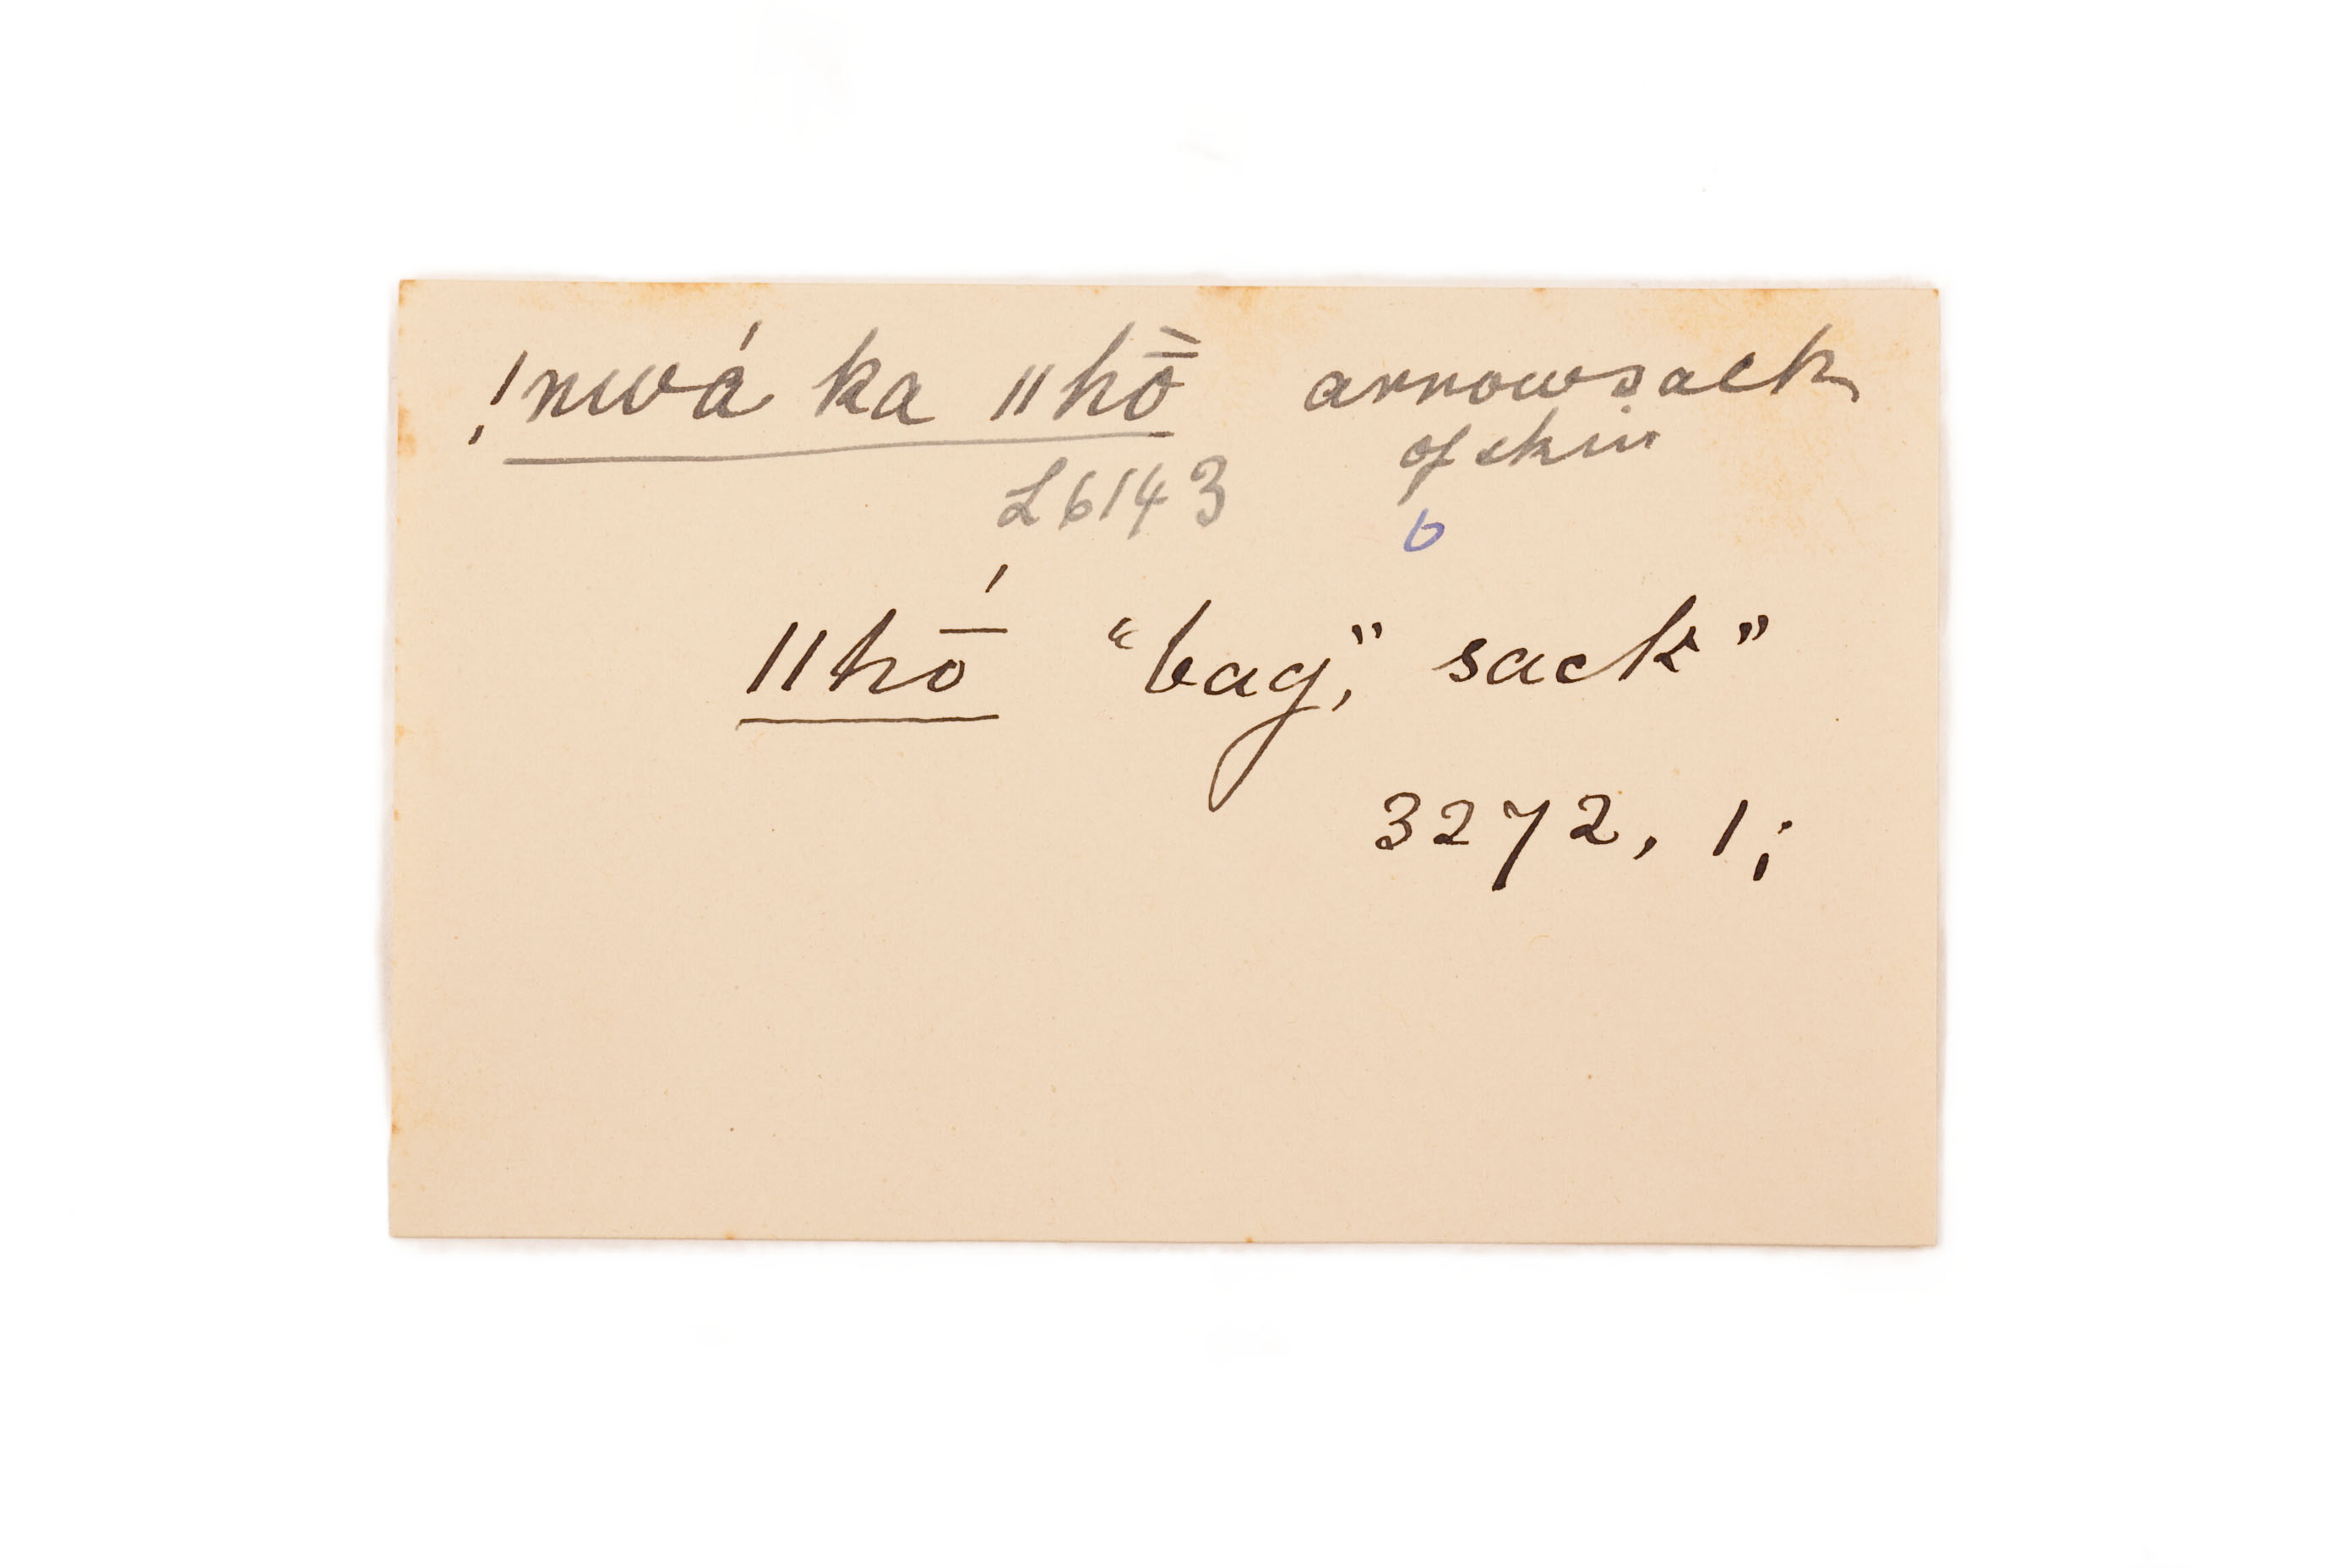 !nwá ka ǁhṑ arrowsack
of skin
L6143 6
ǁhṓ "bag," sack"
3272, 1;